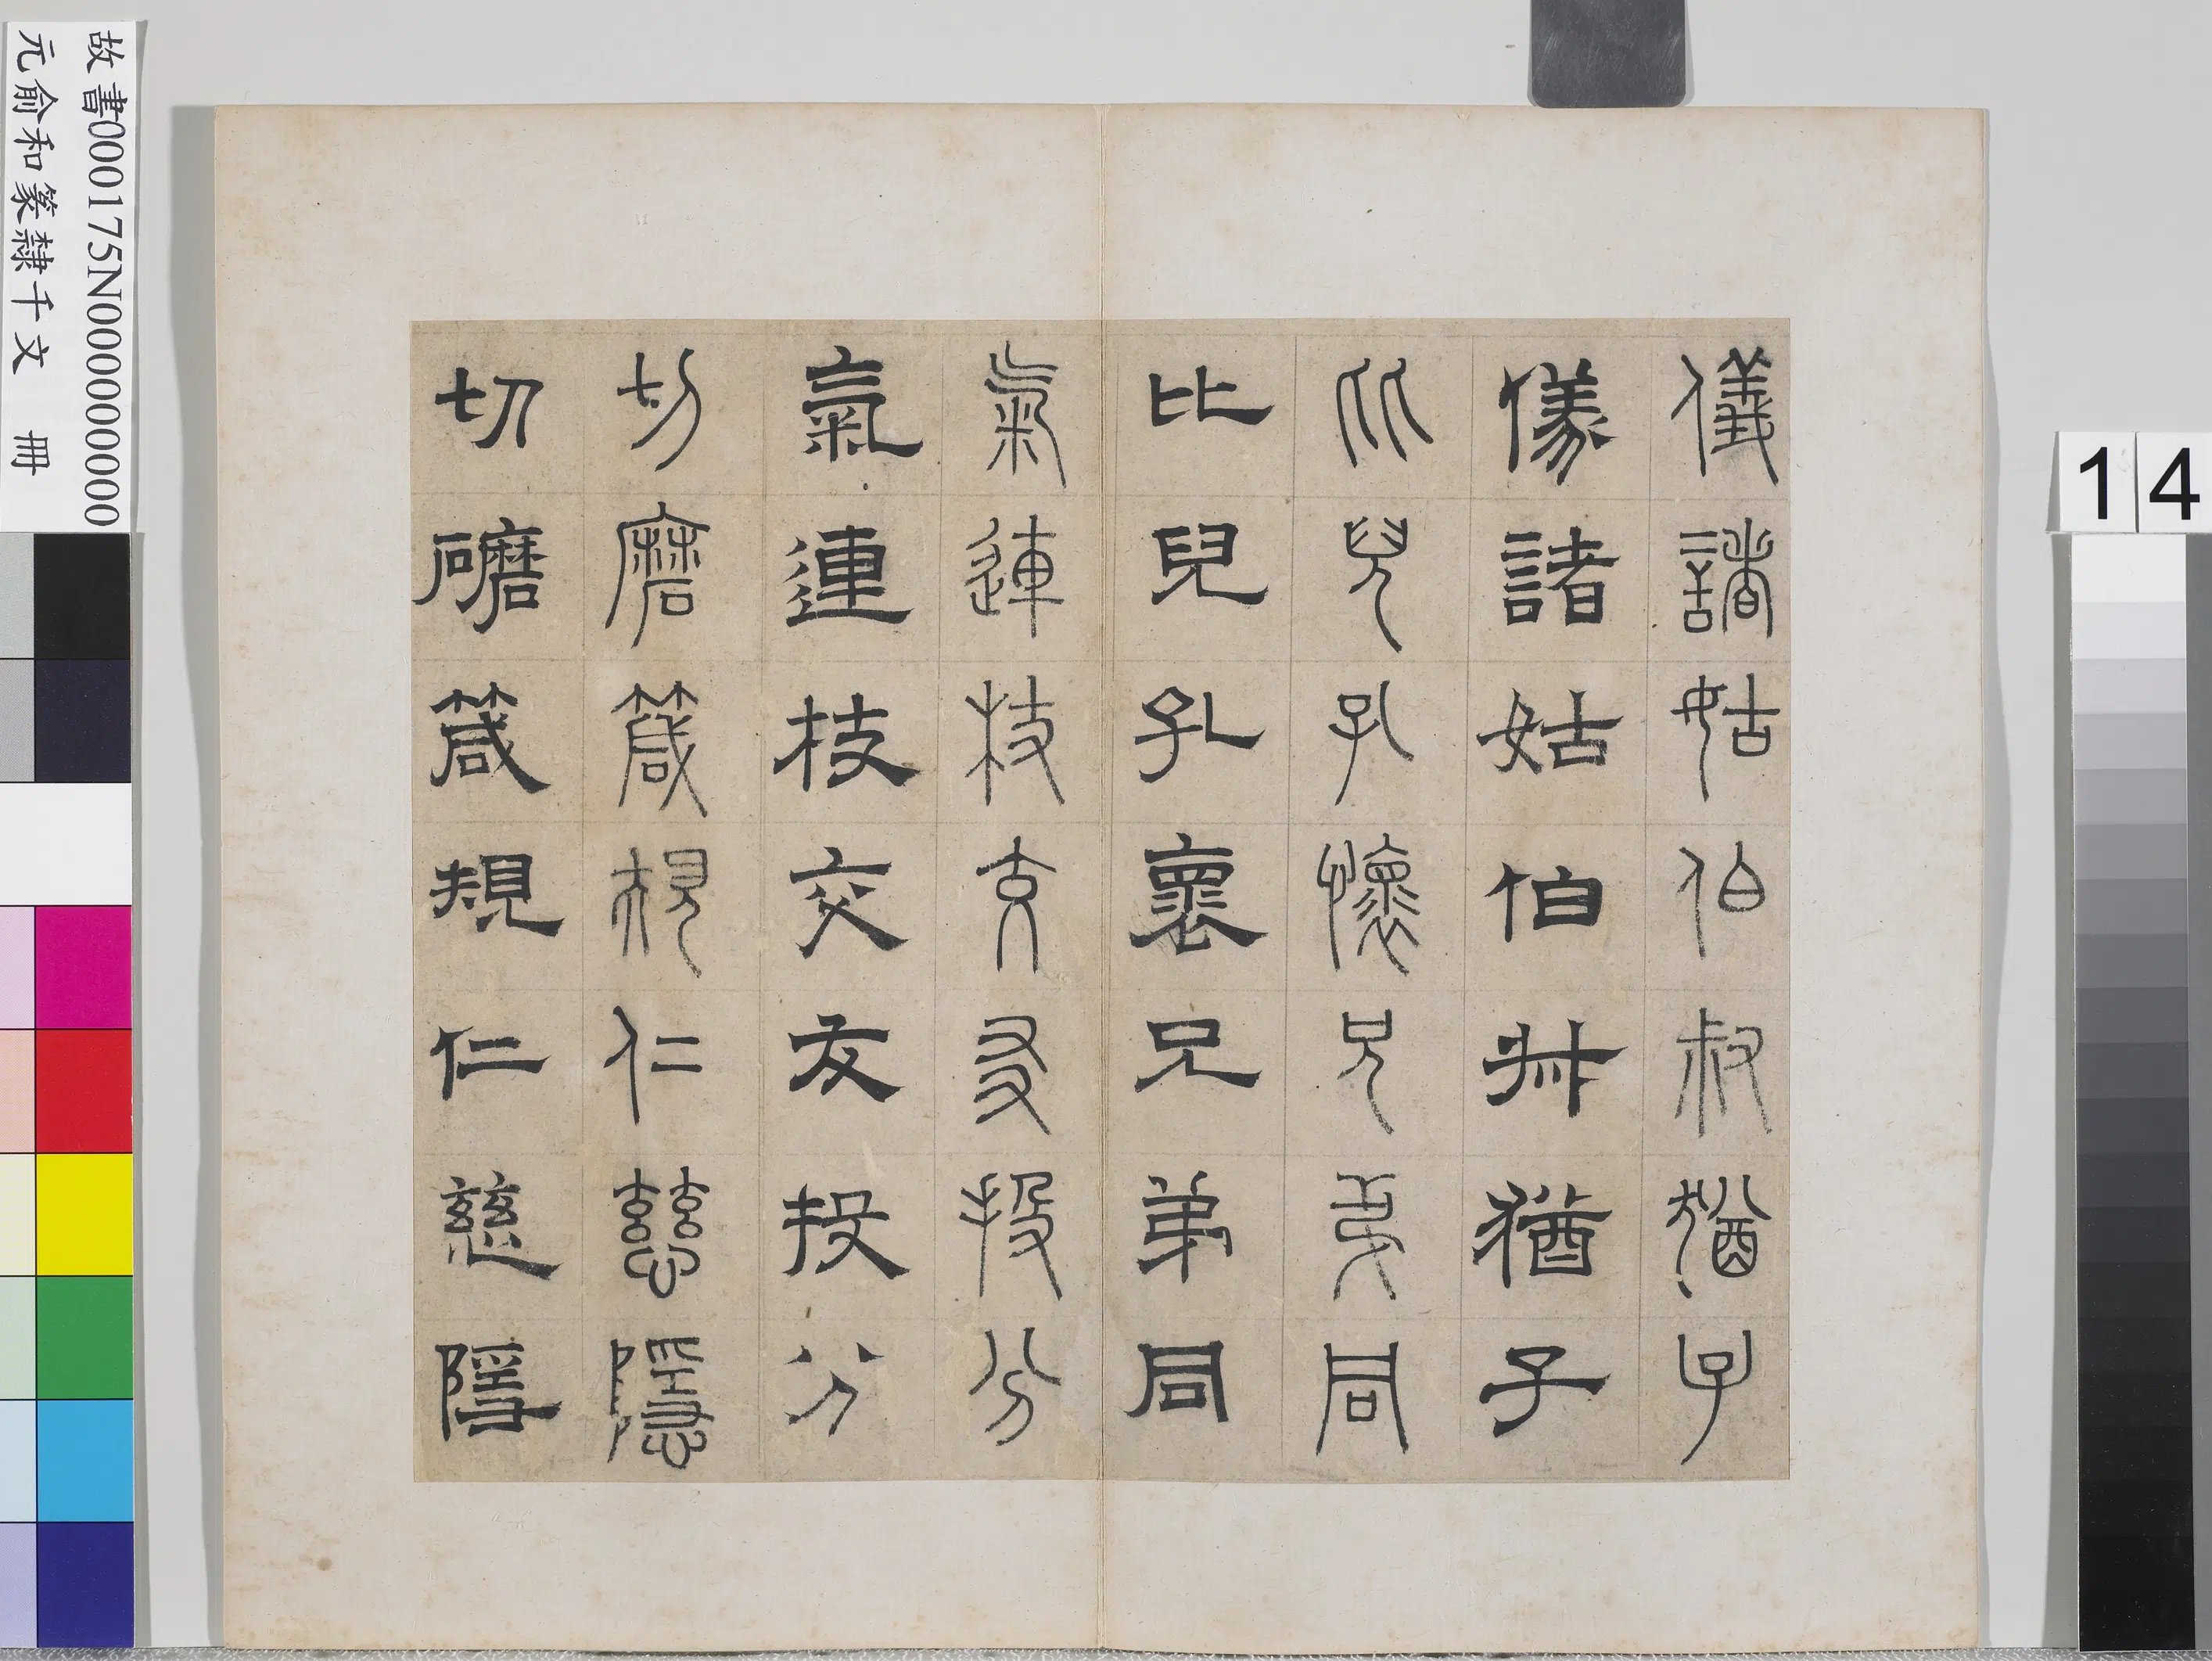 儀諸姑伯叔猶子
儀諸姑伯叔猶子
比兒孔懷兄弟同
比兒孔褱兄弟同
氣連枝交友投分
氣連枝交友投分
切磨箴規仁慈隱
切礳箴規仁慈隱
故書000175N000000000
元俞和篆隸千文 冊
14